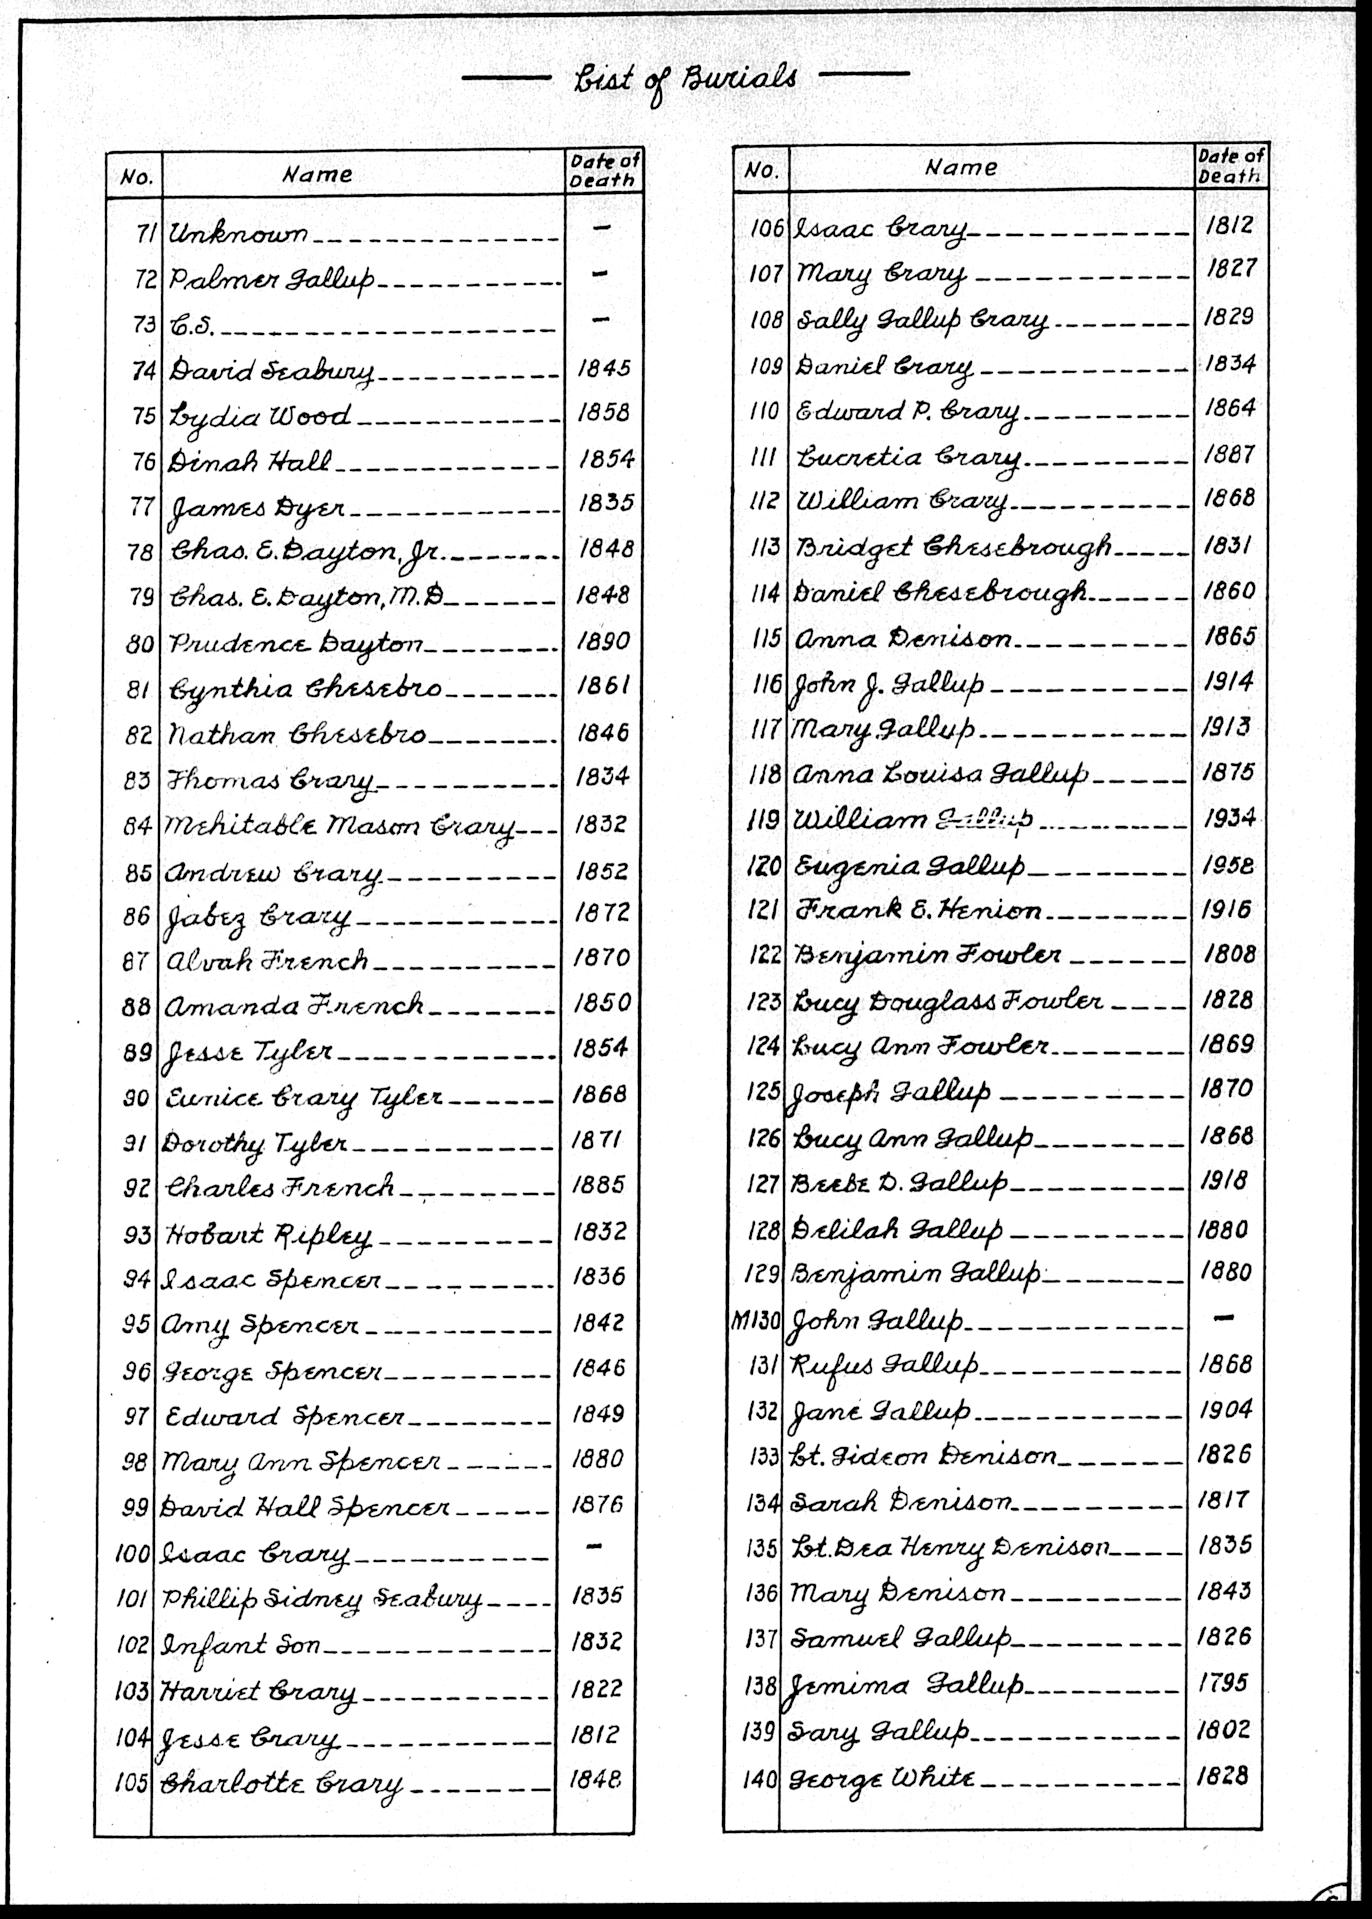 List of Burials
No. Name Date of Death
71 Unknown -
72 Palmer Gallup -
73 C.S. -
74 David Seabury 1845
75 Lydia Wood 1858
76 Dinah Hall 1854
77 James Dyer 1835
78 Chas. E. Dayton, Jr. 1848
79 Chas. E. Dayton, M.D 1848
80 Prudence Dayton 1890
81 Cynthia Chesebro 1861
82 Nathan Chesebro 1846
83 Thomas Crary 1834
84 Mehitable Mason Crary 1832
85 Andrew Crary 1852
86 Jabez Crary 1872
87 Alvah French 1870
88 Amanda French 1850
89 Jesse Tyler 1854
90 Eunice Crary Tyler 1868
91 Dorothy Tyler 1871
92 Charles French 1885
93 Hobart Ripley 1832
94 Isaac Spencer 1836
95 Amy Spencer 1842
96 George Spencer 1846
97 Edward Spencer 1849
98 Mary Ann Spencer 1880
99 David Hall Spencer 1876
100 Isaac Crary -
101 Phillip Sidney Seabury 1835
102 Infant Son 1832
103 Harriet Crary 1822
104 Jesse Crary 1812
105 Charlotte Crary 1848
No. Name Date of Death
106 Isaac Crary 1812
107 Mary Crary 1827
108 Sally Gallup Crary 1829
109 Daniel Crary 1834
110 Edward P. Crary 1864
111 Lucretia Crary 1887
112 William Crary 1868
113 Bridget Chesebrough 1831
114 Daniel Chesebrough 1860
115 Anna Denison 1865
116 John J. Gallup 1914
117 Mary Gallup 1913
118 Anna Louisa Gallup 1875
119 William Gallup 1934
120 Eugenia Gallup 1958
121 Frank E. Henion 1916
122 Benjamin Fowler 1808
123 Lucy Douglass Fowler 1828
124 Lucy Ann Fowler 1869
125 Joseph Gallup 1870
126 Lucy Ann Gallup 1868
127 Beebe D. Gallup 1918
128 Delilah Gallup 1880
129 Benjamin Gallup 1880
M130 John Gallup -
131 Rufus Gallup 1868
132 Jane Gallup 1904
133 Lt. Gideon Denison 1826
134 Sarah Denison 1817
135 Lt. Dea Henry Denison 1835
136 Mary Denison 1843
137 Samuel Gallup 1826
138 Jemima Gallup 1795
139 Sary Gallup 1802
140 George White 1828